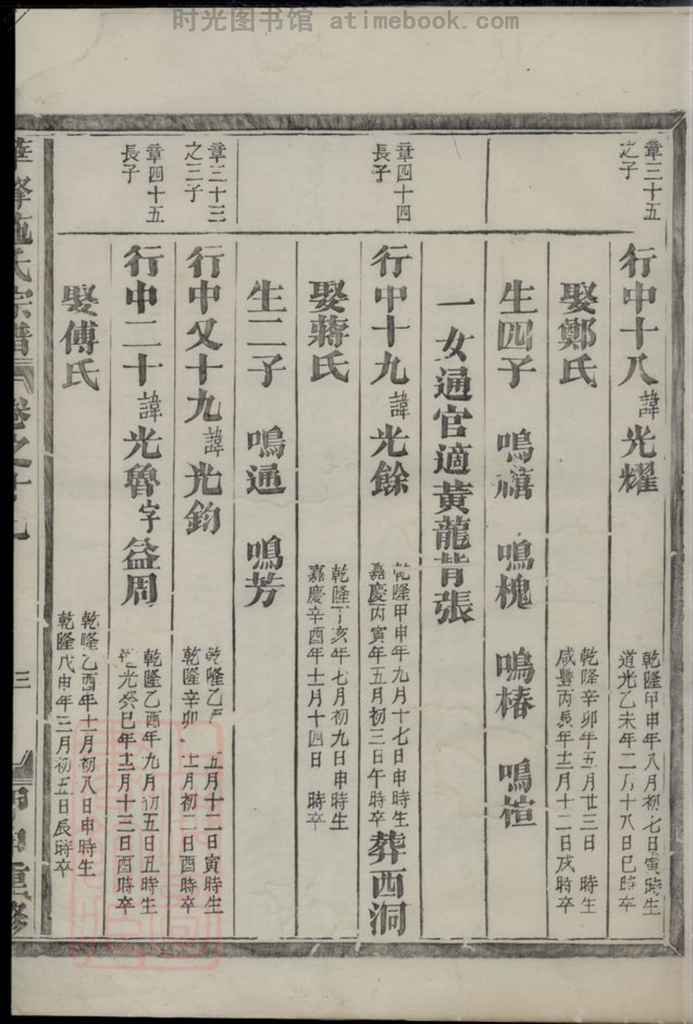 时光图书馆 atimebook.com
章三十五
之子
行中十八諱光耀
乾隆甲申年八月初七日寅時生
道光乙未年二月十八日巳時卒
娶鄭氏
乾隆辛卯年五月廿三日 時生
咸豐丙辰年十二月十二日戌時卒
生四子 鳴禧 鳴槐 鳴椿 鳴楦
一女通官適黃龍背張
章四十四
長子
行中十九諱光餘
乾隆甲申年九月十七日申時生
嘉慶丙寅年五月初三日午時卒
葬西洞
娶蔣氏
乾隆丁亥年七月初九日申時生
嘉慶辛酉年十月十四日 時卒
生二子 鳴通 鳴芳
章三十三
之三子
行中又十九諱光鈞
乾隆乙 五月十二日寅時生
乾隆辛卯 十月初二日酉時卒
章四十五
長子
行中二十諱光魯字益周
乾隆乙酉年九月初五日丑時生
道光癸巳年十二月十三日酉時卒
娶傅氏
乾隆乙酉年十一月初八日申時生
乾隆戊申年三月初五日辰時卒
峰施氏宗譜 卷之十九
三
重修